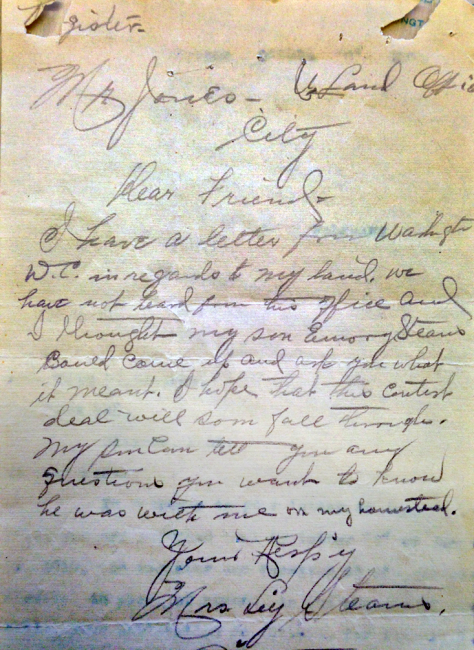 Register-
NGT
Mr Jones - US Land Office
City
Dear Friend-
I have a letter from Washington
D.C. in regards to my land. we
have not heard from this office and
I thought my son Emory Stearns
Could Come up and ask you what
it meant. I hope that this contest
deal will soon fall through.
My son Can tell you any
questions you want to know
he was with me on my homestead.
Yours Resp'y
Mrs Stearns.